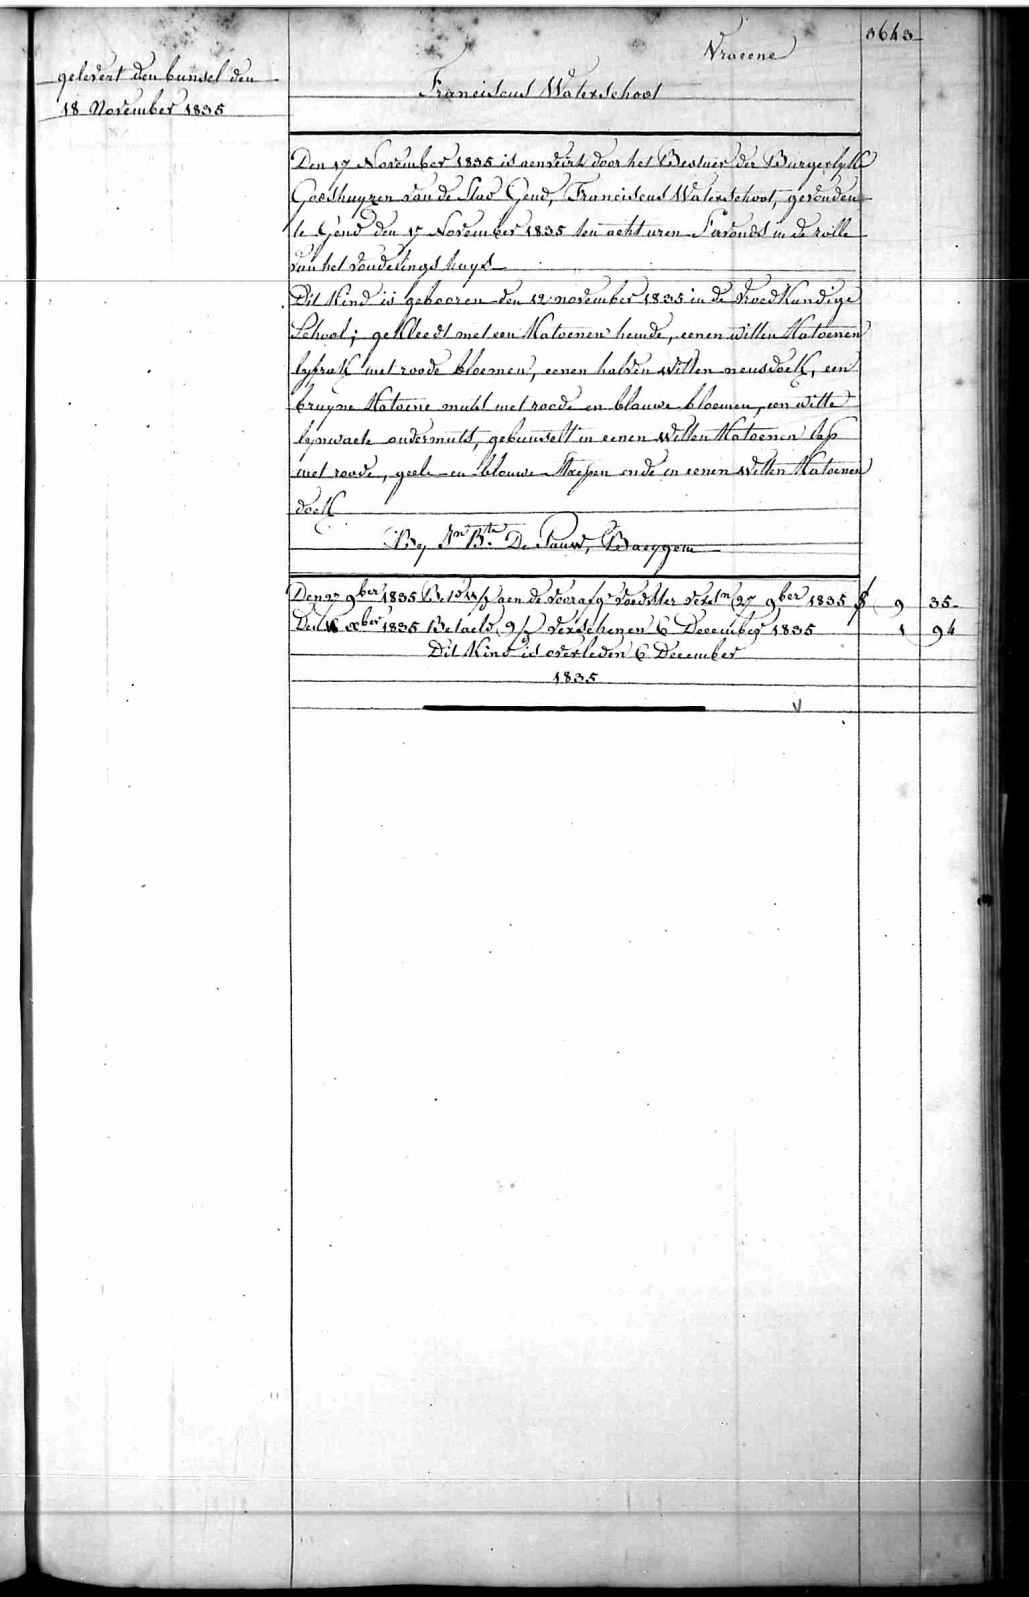 3643
Vracene
gelevert den bunsel den
18 November 1835
Franciscus Waterschoot
Den 17 November 1835 is aenveirt door het Bestuer der Burgerlyke
Godshuyzen van de Stad Gend, Franciscus Waterschoot, gevonden
te Gend den 17 November 1835 ten acht uren S'avonds in de rolle
van het vondelings huys
Dit Kind is gebooren den 12 november 1835 in de Vroedkundige
School; gekleedt met een Katoenen hemde, eenen witten Katoenen
lyfrok met roode bloemen, eenen halven witten neusdoek, een
bruyne Katoene muts met roode en blauwe bloemen, een witte
lynwaete ondermuts, gebunselt in eenen witten Katoenen lap
met roode, geele en blauwe streepen ende in eenen witten Katoenen
doek
By Jn Bte De Pauw, Baeygem
Den 27 9ber 1835 aen de voedster 27 9ber 1835 9 35
Den 8ber 1835 Betaeld verschenen 6 December 1835 1 94
Dit Kind is overleden 6 December
1835